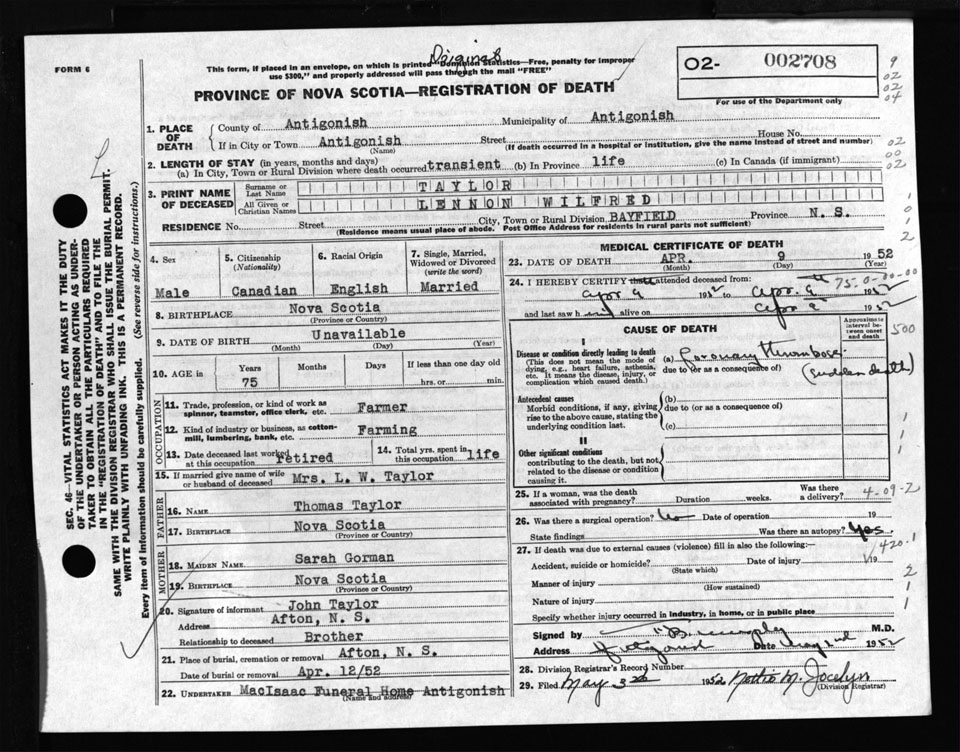 FORM 6
Original
This form, if placed in an envelope, on which is printed "Dominion Statistics—Free, penalty for improper
use $300," and properly addressed will pass through the mail "FREE"
PROVINCE OF NOVA SCOTIA—REGISTRATION OF DEATH
02- 002708
For use of the Department only
9
02
02
04
1. PLACE OF DEATH
County of Antigonish Municipality of Antigonish
If in City or Town Antigonish Street House No.
(Name) (If death occurred in a hospital or institution, give the name instead of street and number)
02
00
02
2. LENGTH OF STAY (in years, months and days)
(a) In City, Town or Rural Division where death occurred transient (b) In Province life (c) In Canada (if immigrant)
3. PRINT NAME OF DECEASED
Surname or Last Name TAYLOR
All Given or Christian Names LENNON WILFRED
RESIDENCE No. Street City, Town or Rural Division BAYFIELD Province N. S.
(Residence means usual place of abode. Post Office Address for residents in rural parts not sufficient)
1
0
1
2
4. Sex
Male
5. Citizenship
(Nationality)
Canadian
6. Racial Origin
English
7. Single, Married,
Widowed or Divorced
(write the word)
Married
8. BIRTHPLACE Nova Scotia
(Province or Country)
9. DATE OF BIRTH Unavailable
(Month) (Day) (Year)
10. AGE IN
Years Months Days If less than one day old
75 hrs. or min.
OCCUPATION
11. Trade, profession, or kind of work as
spinner, teamster, office clerk, etc. Farmer
12. Kind of industry or business, as cotton-
mill, lumbering, bank, etc. Farming
13. Date deceased last worked
at this occupation retired
14. Total yrs. spent in
this occupation life
15. If married give name of wife
or husband of deceased Mrs. L. W. Taylor
FATHER
16. NAME Thomas Taylor
17. BIRTHPLACE Nova Scotia
(Province or Country)
MOTHER
18. MAIDEN NAME Sarah Gorman
19. BIRTHPLACE Nova Scotia
(Province or Country)
20. Signature of informant John Taylor
Address Afton, N. S.
Relationship to deceased Brother
21. Place of burial, cremation or removal Afton, N. S.
Date of burial or removal Apr. 12/52
22. UNDERTAKER MacIsaac Funeral Home Antigonish
(Name and address)
MEDICAL CERTIFICATE OF DEATH
23. DATE OF DEATH APR. 9 1952
(Month) (Day) (Year)
24. I HEREBY CERTIFY that I attended deceased from:
Apr. 9 1952 to Apr. 9th 75-0-00-00
and last saw him alive on Apr 9 1952
CAUSE OF DEATH
Approximate
interval be-
tween onset
and death
500
I
Disease or condition directly leading to death
(This does not mean the mode of
dying, e.g., heart failure, asthenia,
etc. It means the disease, injury, or
complication which caused death.)
(a) Coronary Thrombosis
due to (or as a consequence of)
(sudden death)
Antecedent causes
Morbid conditions, if any, giving
rise to the above cause, stating the
underlying condition last.
(b)
due to (or as a consequence of)
(c)
II
Other significant conditions
contributing to the death, but not
related to the disease or condition
causing it.
1
1
1
25. If a woman, was the death
associated with pregnancy? Duration weeks. Was there
a delivery? 4-09-2
26. Was there a surgical operation? No Date of operation 19
State findings Was there an autopsy? Yes
27. If death was due to external causes (violence) fill in also the following:— 420.1
Accident, suicide or homicide? Date of injury 19
(State which)
Manner of injury
(How sustained)
Nature of injury
Specify whether injury occurred in industry, in home, or in public place
2
1
1
Signed by Murphy M.D.
Address Antigonish Date May 2nd 1952
28. Division Registrar's Record Number
29. Filed May 3rd 1952 Nettie M. Jocelyn
(Division Registrar)
SEC. 46—VITAL STATISTICS ACT MAKES IT THE DUTY
OF THE UNDERTAKER OR PERSON ACTING AS UNDER-
TAKER TO OBTAIN ALL THE PARTICULARS REQUIRED
IN THE "REGISTRATION OF DEATH" AND TO FILE THE
SAME WITH THE DIVISION REGISTRAR WHO SHALL ISSUE THE BURIAL PERMIT.
WRITE PLAINLY WITH UNFADING INK. THIS IS A PERMANENT RECORD.
Every item of information should be carefully supplied. (See reverse side for instructions.)